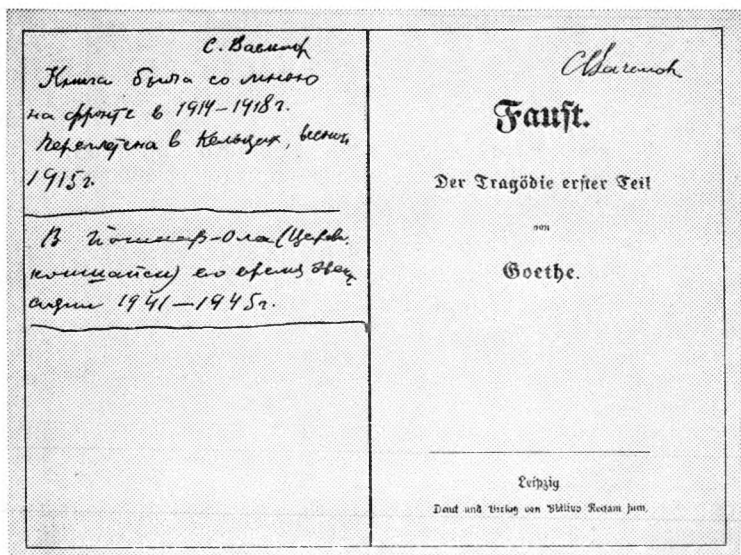 С. Вавилов
Книга была со мною
на фронте в 1914–1918 г.
Переплетена в Кельцах, весной
1915 г.
В Йошкар-Ола (Царево-
кокшайск) во время эвак
уации 1941–1945 г.
Faust.
Der Tragödie erster Teil
von
Goethe.
Leipzig
Druck und Verlag von Philipp Reclam jun.